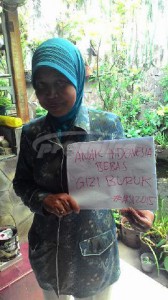 ANAK INDONESIA
BEBAS
GIZI BURUK